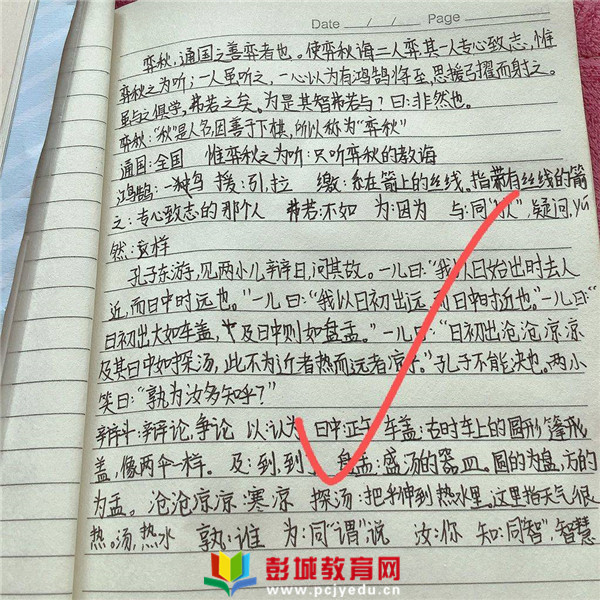 Date / / Page
弈秋,通国之善弈者也。使弈秋诲二人弈,其一人专心致志,惟
弈秋之为听;一人虽听之,一心以为有鸿鹄将至,思援弓擢而射之。
虽与之俱学,弗若之矣。为是其智弗若与?曰:非然也。
弈秋:“秋”是人名,因善于下棋,所以称为“弈秋”
通国:全国 惟弈秋之为听:只听弈秋的教诲
鸿鹄:一种鸟 援:引,拉 缴:系在箭上的丝线。指带有丝线的箭
之:专心致志的那个人 弗若:不如 为:因为 与:同“欤”,疑问,yú
然:这样
孔子东游,见两小儿辩日,问其故。一儿曰:“我以日始出时去人
近,而日中时远也。”一儿曰:“我以日初出远,而日中时近也。”一儿曰:“
日初出大如车盖,及日中则如盘盂。”一儿曰:“日初出沧沧凉凉
及其日中如探汤,此不为近者热而远者凉乎。”孔子不能决也。两小
笑曰:“孰为汝多知乎?”
辩斗:辩论,争论 以:认为 日中:正午 车盖:古时车上的圆形篷
盖,像两伞一样。 及:到,到 盘盂:盛汤的器皿。圆的为盘,方的
为盂。 沧沧凉凉:寒凉 探汤:把手伸到热水里。这里指天气很
热。汤,热水 孰:谁 为:同“谓”说 汝:你 知:同“智”,智慧
彭城教育网
www.pcjyedu.cn